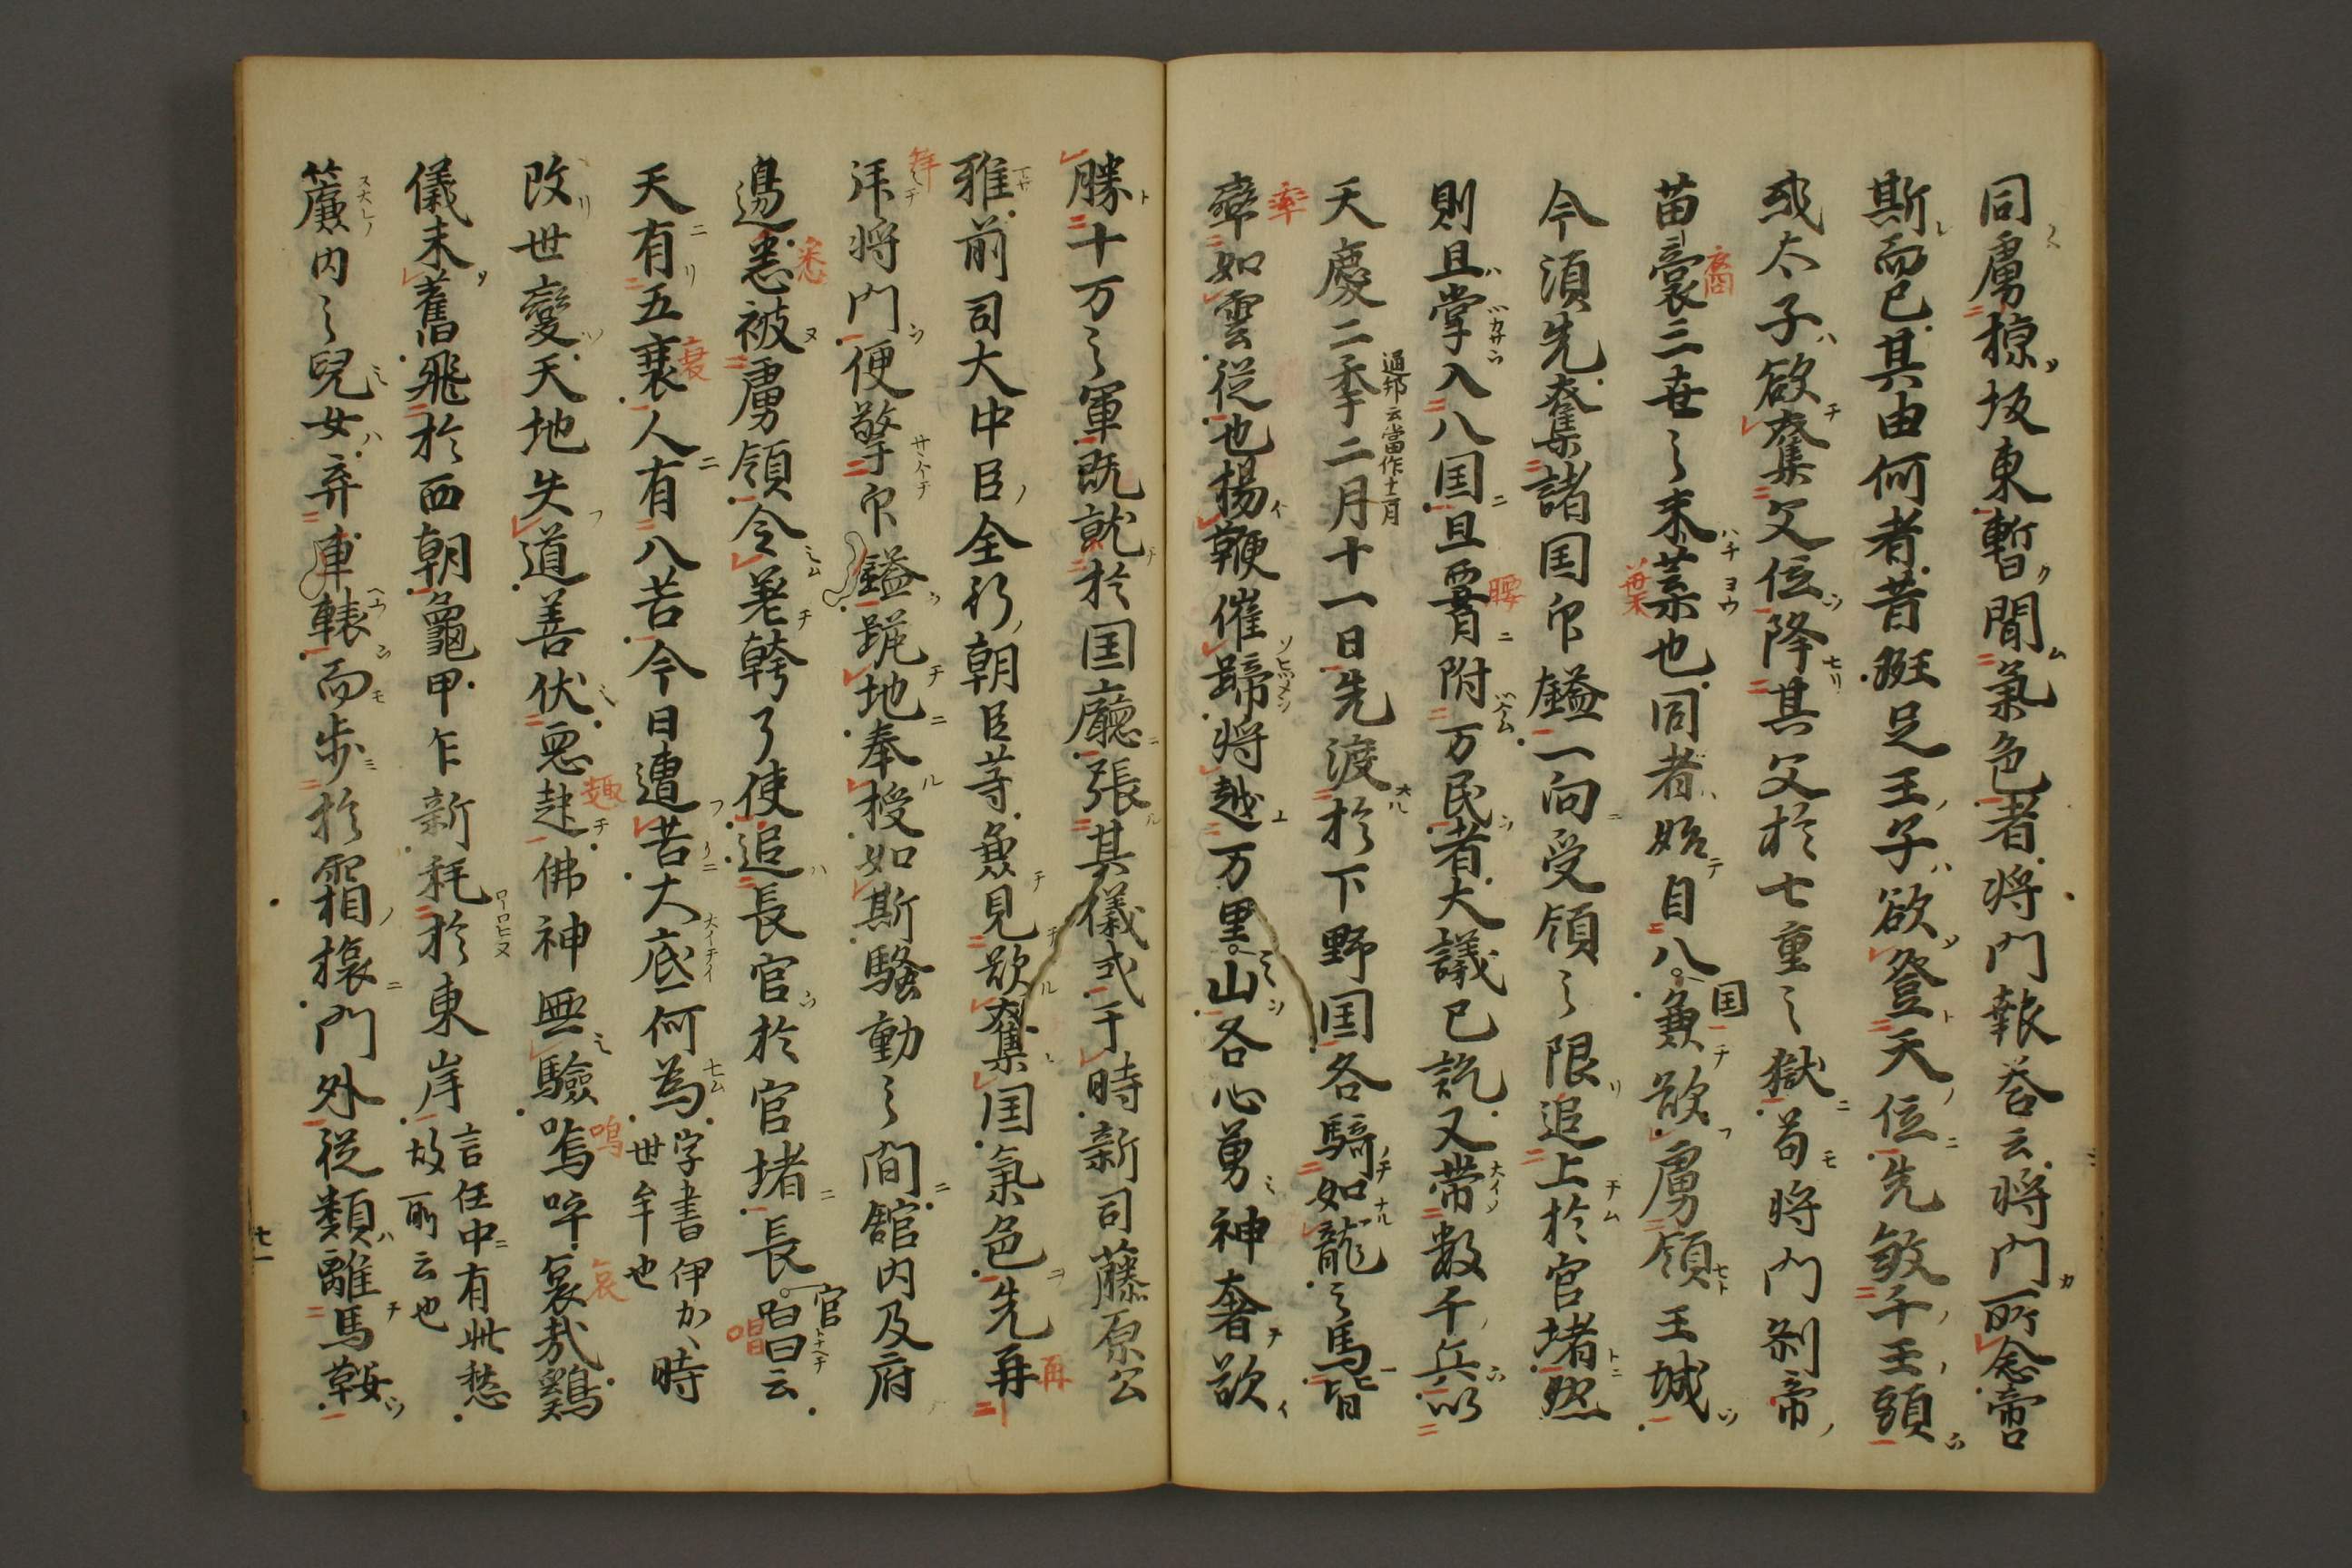 同虜掠坂東暫聞氣色者将門報荅云将門所念啻
斯而已其由何者昔班足王子欲登天位先敘千王頭
或太子欲奪父位降其父於七重之獄苟将門刹帝
苗裔三世之末葉也同者始自八国兼欲虜領王城
今須先奪諸国印鎰一向受領之限追上於官堵然
則且掌入八国且腰附万民者大議已訖又帶數千兵以
天慶二季二月十一日先渡於下野国各騎如龍之馬皆
率如雲従也楊鞭催蹄将越万里山各心勇神奢欲
勝十万之軍既就於国廳張其儀式于時新司藤原公
雅前司大中臣全行朝臣等兼見欲奪国氣色先再
拝将門便擎印鎰跪地奉授如斯騒動之間館内及府
邊悉被虜領令差幹了使追長官於官堵長官唱云
天有五衰人有八苦今日遭苦大底何為字書伊か、時世牟也
改世變天地失道善伏悪起佛神無驗嗚呼哀哉鶏
儀未舊飛於西朝龜甲乍新耗於東岸言任中有此愁故所云也
簾内之兒女弃車轅而歩於霜榱門外従類離馬鞍
通邦云當作十二月
裔
葉
腰
率
再
拝
悉
唱
衰
趣
嗚
哀
七一